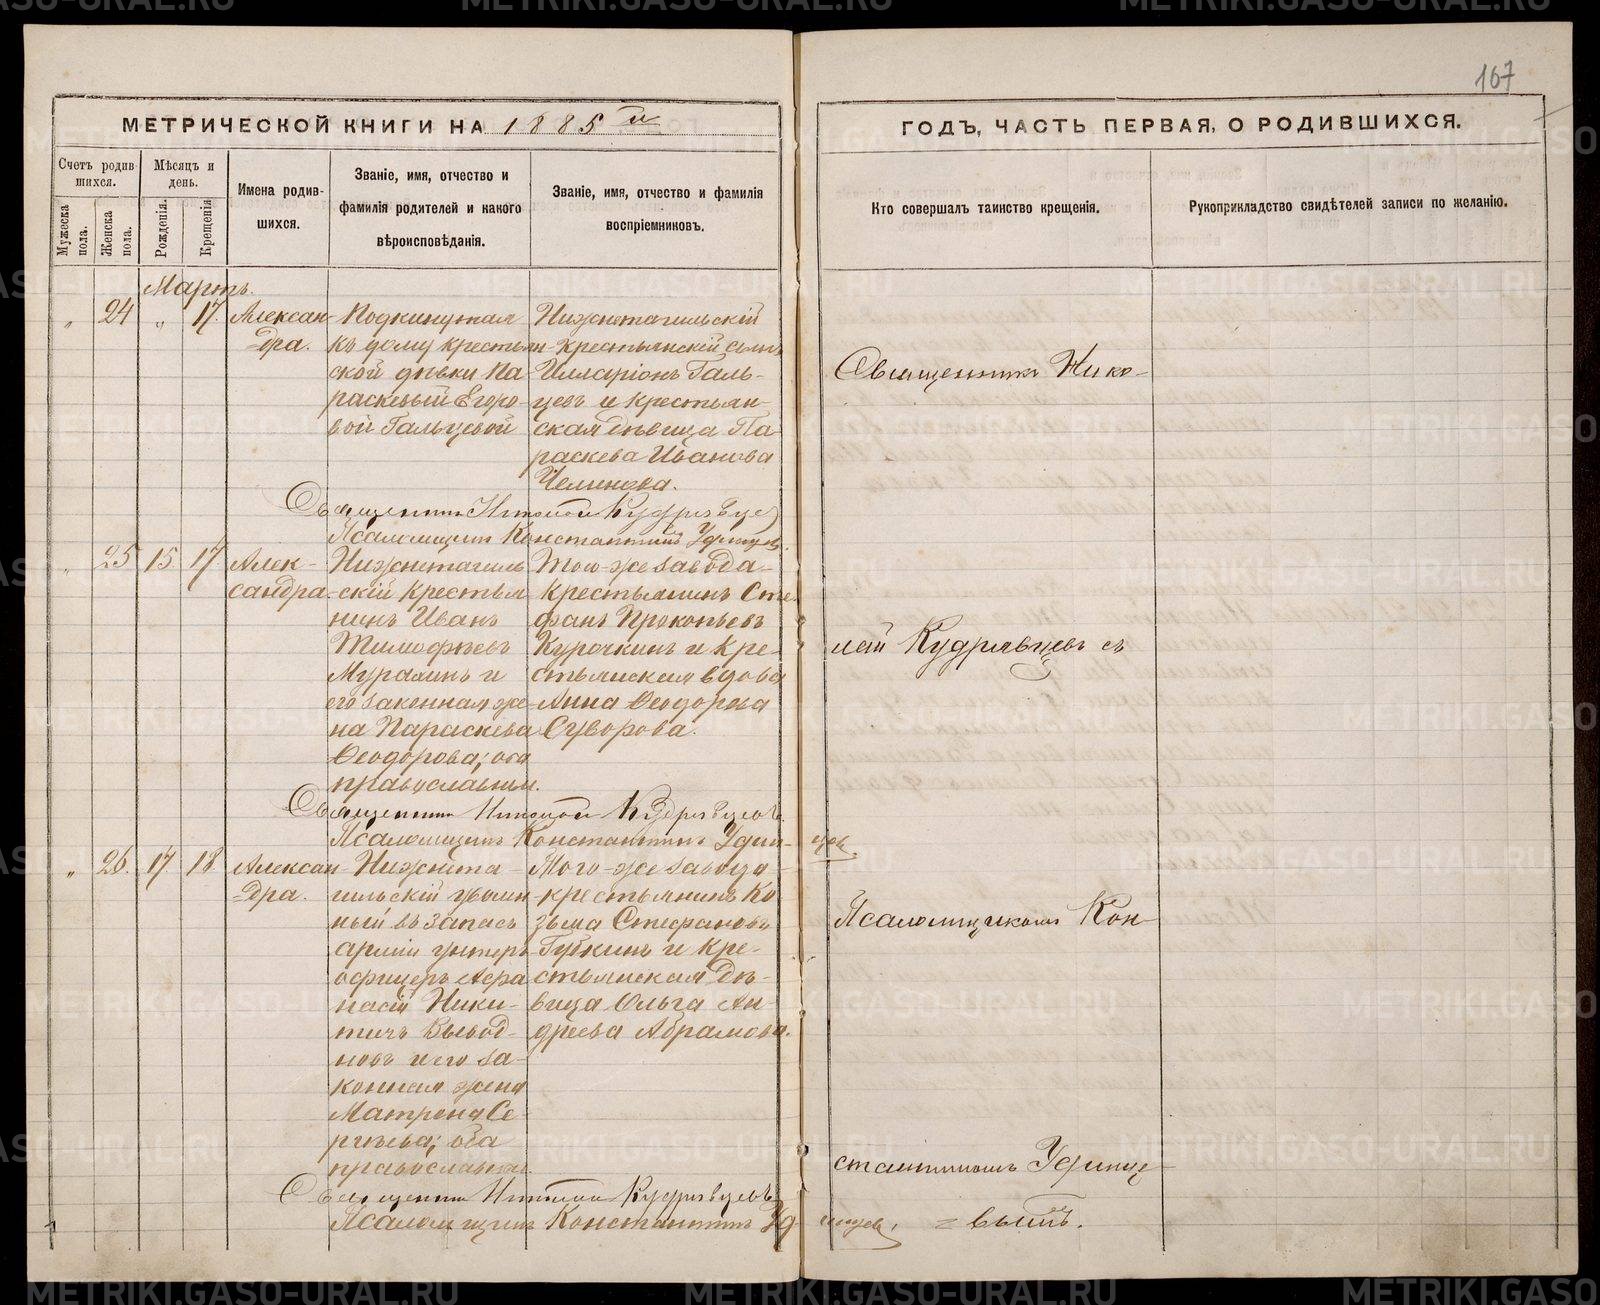 167
МЕТРИЧЕСКОЙ КНИГИ НА 1885 й
ГОДЪ, ЧАСТЬ ПЕРВАЯ, О РОДИВШИХСЯ.
Счетъ родив-
шихся.
Мужеска
пола.
Женска
пола.
Мѣсяцъ и
день.
Рожденія.
Крещенія
Имена родив-
шихся.
Званіе, имя, отчество и
фамилія родителей и какого
вѣроисповѣданія.
Званіе, имя, отчество и фамилія
воспріемниковъ.
Кто совершалъ таинство крещенія.
Рукоприкладство свидѣтелей записи по желанію.
Мартъ.
„ 24 „ 17.
Алексан-
дра.
Подкинутая
къ дому крестьян-
ской дѣвки Па-
раскевы Егоро-
вой Гальцевой
Нижнетагильскій
Крестьянскій сынъ
Илларіонъ Галь-
цевъ и крестьян-
ская дѣвица Па-
раскева Иванова
Челинова.
Священникъ Николай Кудрявцев
Псаломщик Константинъ Удинцев.
„ 25 15 17
Алек-
сандра
Нижнетагиль-
скій крестья-
нинъ Иванъ
Тимофѣевъ
Мурахинъ и
его законная же-
на Параскева
Ѳеодорова; оба
православны.
Того-же завода
крестьянинъ Сте-
фанъ Прокопьевъ
Курочкинъ и кре-
стьянская вдова
Анна Ѳеодорова
Суворова.
Священникъ Николай Кудрявцевъ
Псаломщикъ Константинъ Удин-
цев.
„ 26. 17 18
Алексан-
дра.
Нижнета-
гильскій уволен-
ный въ запасъ
арміи унтеръ
офицеръ Афа-
насій Ники-
тичъ Вывод-
новъ и его за-
конная жена
Матрона Се-
ргѣева; оба
православны.
Того-же завода
крестьянинъ Ко-
зьма Стефановъ
Губкинъ и кре-
стьянская дѣ-
вица Ольга Ан-
дреева Абрамова.
Священникъ Николай Кудрявцевъ
Псаломщикъ Константинъ Уд-
инцев.
Священникъ Нико-
лай Кудрявцевъ съ
Псаломщикомъ Кон-
стантиномъ Удинце-
=вымъ.
METRIKI.GASO-URAL.RU